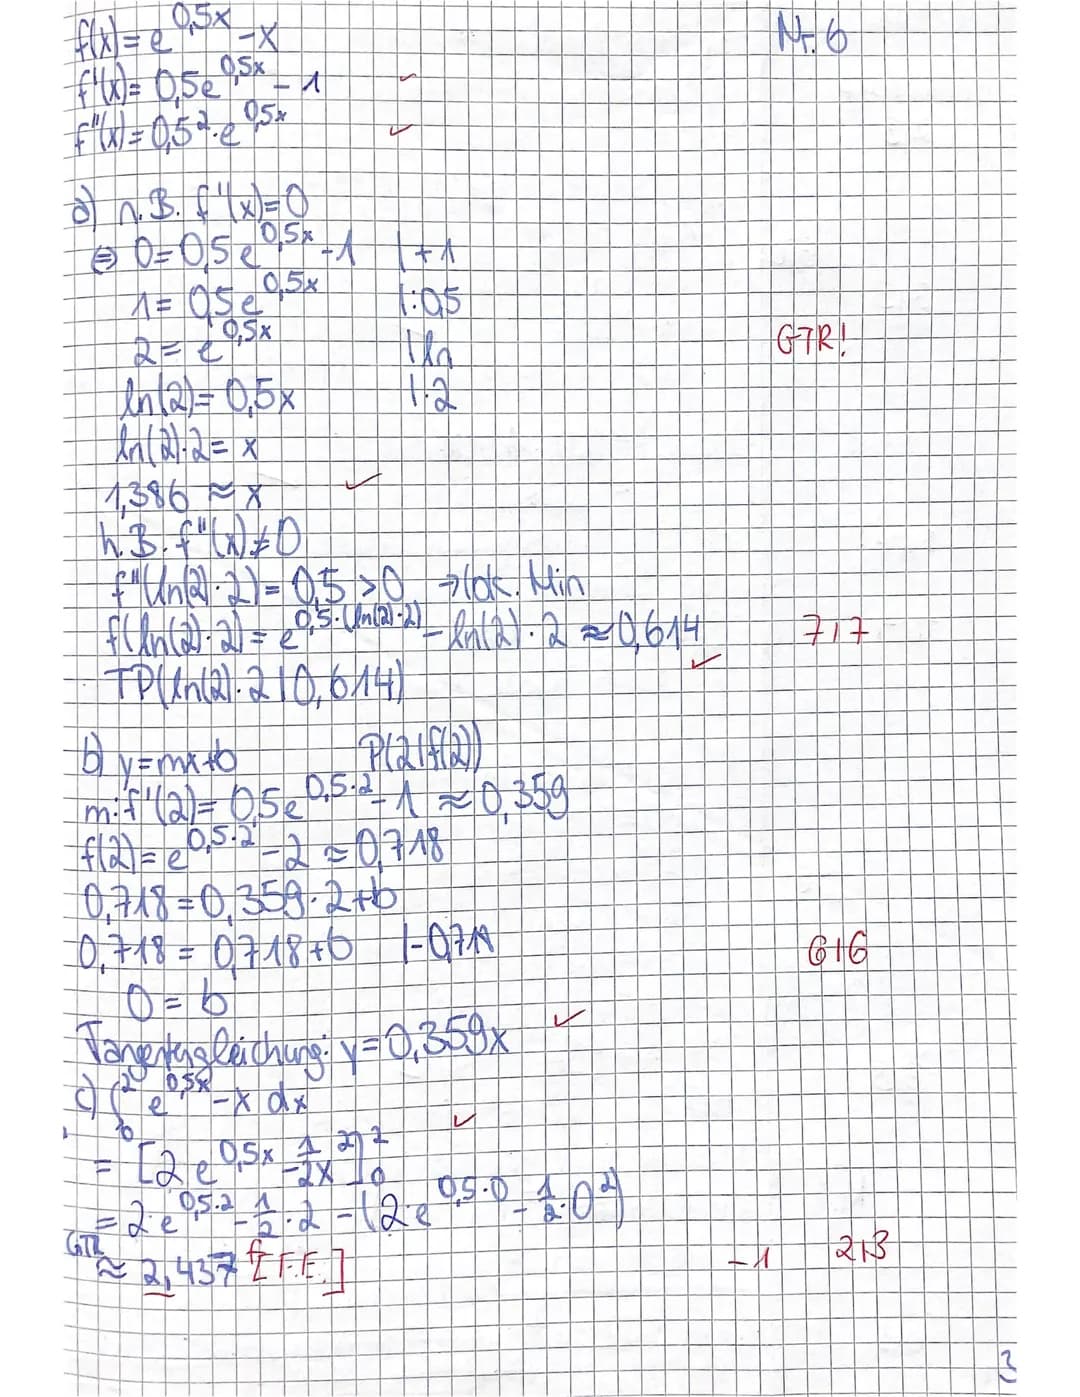 f(x)= e^0,5x -x Nr. 6
f'(x)= 0,5e^0,5x - 1 ✓
f''(x)= 0,5²·e^0,5x ✓
a) n.B. f'(x)=0
⇔ 0=0,5e^0,5x -1 |+1
1= 0,5e^0,5x |:0,5
2= e^0,5x |ln GTR!
ln(2)= 0,5x |·2
ln(2)·2= x
1,386 ≈ x ✓
h.B. f''(x)≠0
f''(ln(2)·2)= 0,5 >0 → lok. Min
f(ln(2)·2)= e^0,5·(ln(2)·2) - ln(2)·2 ≈ 0,614 ✓ 7/7
TP(ln(2)·2|0,614)
b) y=mx+b P(2|f(2))
m: f'(2)= 0,5e^0,5·2 -1 ≈ 0,359
f(2)= e^0,5·2 -2 ≈ 0,718
0,718=0,359·2+b
0,718= 0,718+b |-0,718 6/6
0= b
Tangentengleichung: y=0,359x ✓
c) ∫₀² e^0,5x -x dx
= [2e^0,5x -1/2x²]₀² ✓
= 2·e^0,5·2 -1/2·2 -(2·e^0,5·0 -1/2·0²)
GTR ≈ 2,437 f [F.E.] -1 2/3
3